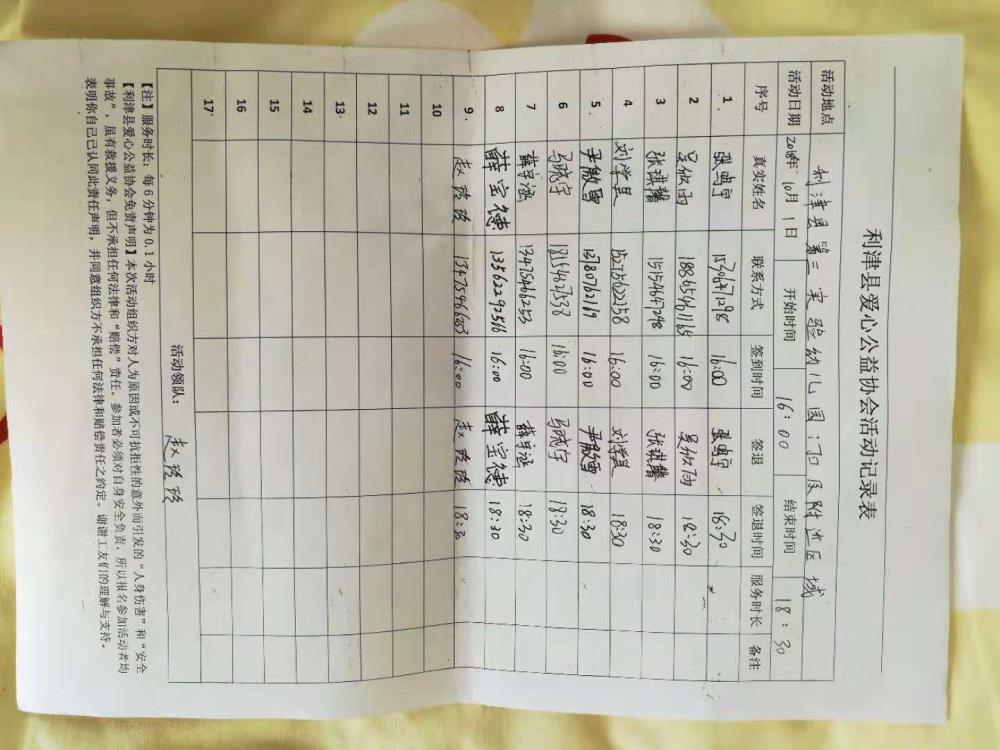 利津县爱心公益协会活动记录表
活动地点 利津县第二实验幼儿园门口及附近区域
活动日期 2018年10月1日 开始时间 16:00 结束时间 18:30
序号 真实姓名 联系方式 签到时间 签退 签退时间 服务时长 备注
1. 16:00 18:30
2 18854611165 16:00 18:30
3 张琪馨 15154647298 16:00 张琪馨 18:30
4 15275622258 16:00 18:30
5. 尹傲雪 13780762169 16:00 尹傲雪 18:30
6 马晓宇 16:00 马晓宇 18:30
7 薛宇涵 13475466253 16:00 薛宇涵 18:30
8 薛宝德 13562292566 16:00 薛宝德 18:30
9. 赵玲玲 16:00 赵玲玲 18:30
10
11
12
13.
14
15
16
17
活动领队: 赵玲玲
【注】服务时长:每6分钟为0.1小时
【利津县爱心公益协会免责声明】本次活动组织方对人为原因或不可抗拒性的意外而引发的“人身伤害”和“安全
事故”,虽有救援义务,但不承担任何法律和“赔偿”责任。参加者必须对自身安全负责,所以报名参加活动者均
表明你自己已认同此责任声明,并同意组织方不承担任何法律和赔偿责任之约定。谢谢工友们的理解与支持。